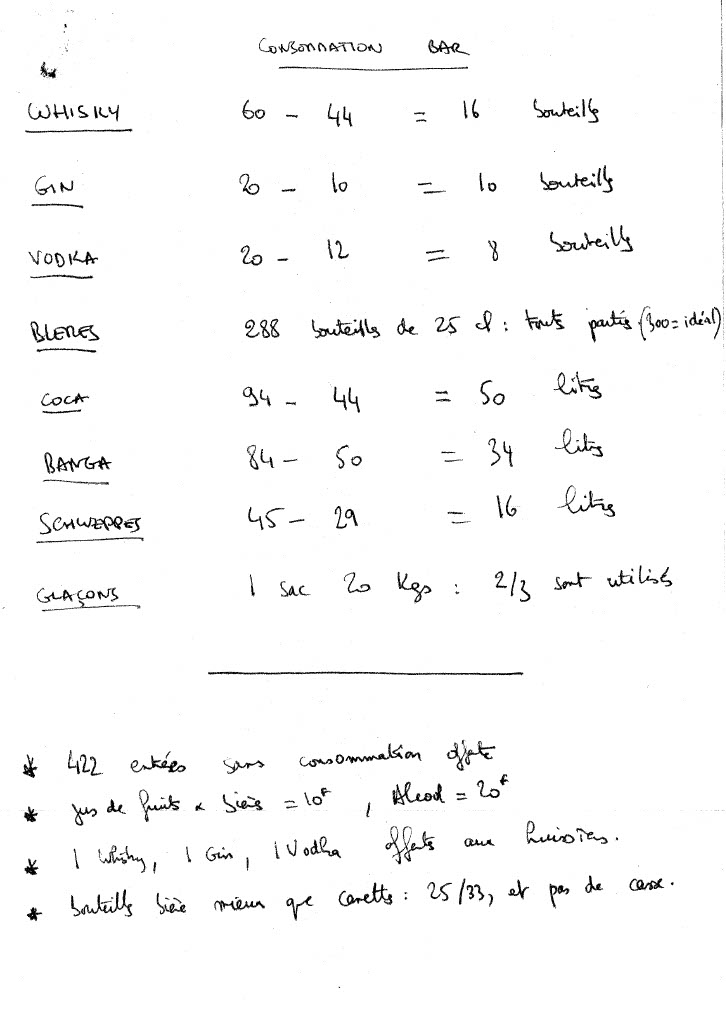 CONSOMMATION BAR
WHISKY 60 - 44 = 16 bouteilles
GIN 20 - 10 = 10 bouteilles
VODKA 20 - 12 = 8 bouteilles
BIERES 288 bouteilles de 25 cl : touts parties (300 = idéal)
COCA 94 - 44 = 50 litres
BANGA 84 - 50 = 34 litres
SCHWEPPES 45 - 29 = 16 litres
GLAÇONS 1 sac 20 Kgs : 2/3 sont utilisés
* 422 entrées sans consommation offerte
* jus de fruits & bières = 10F, Alcool = 20F
* 1 Whisky, 1 Gin, 1 Vodka offerts aux huissiers.
* bouteilles bière mieux que canettes : 25/33, et pas de casse.